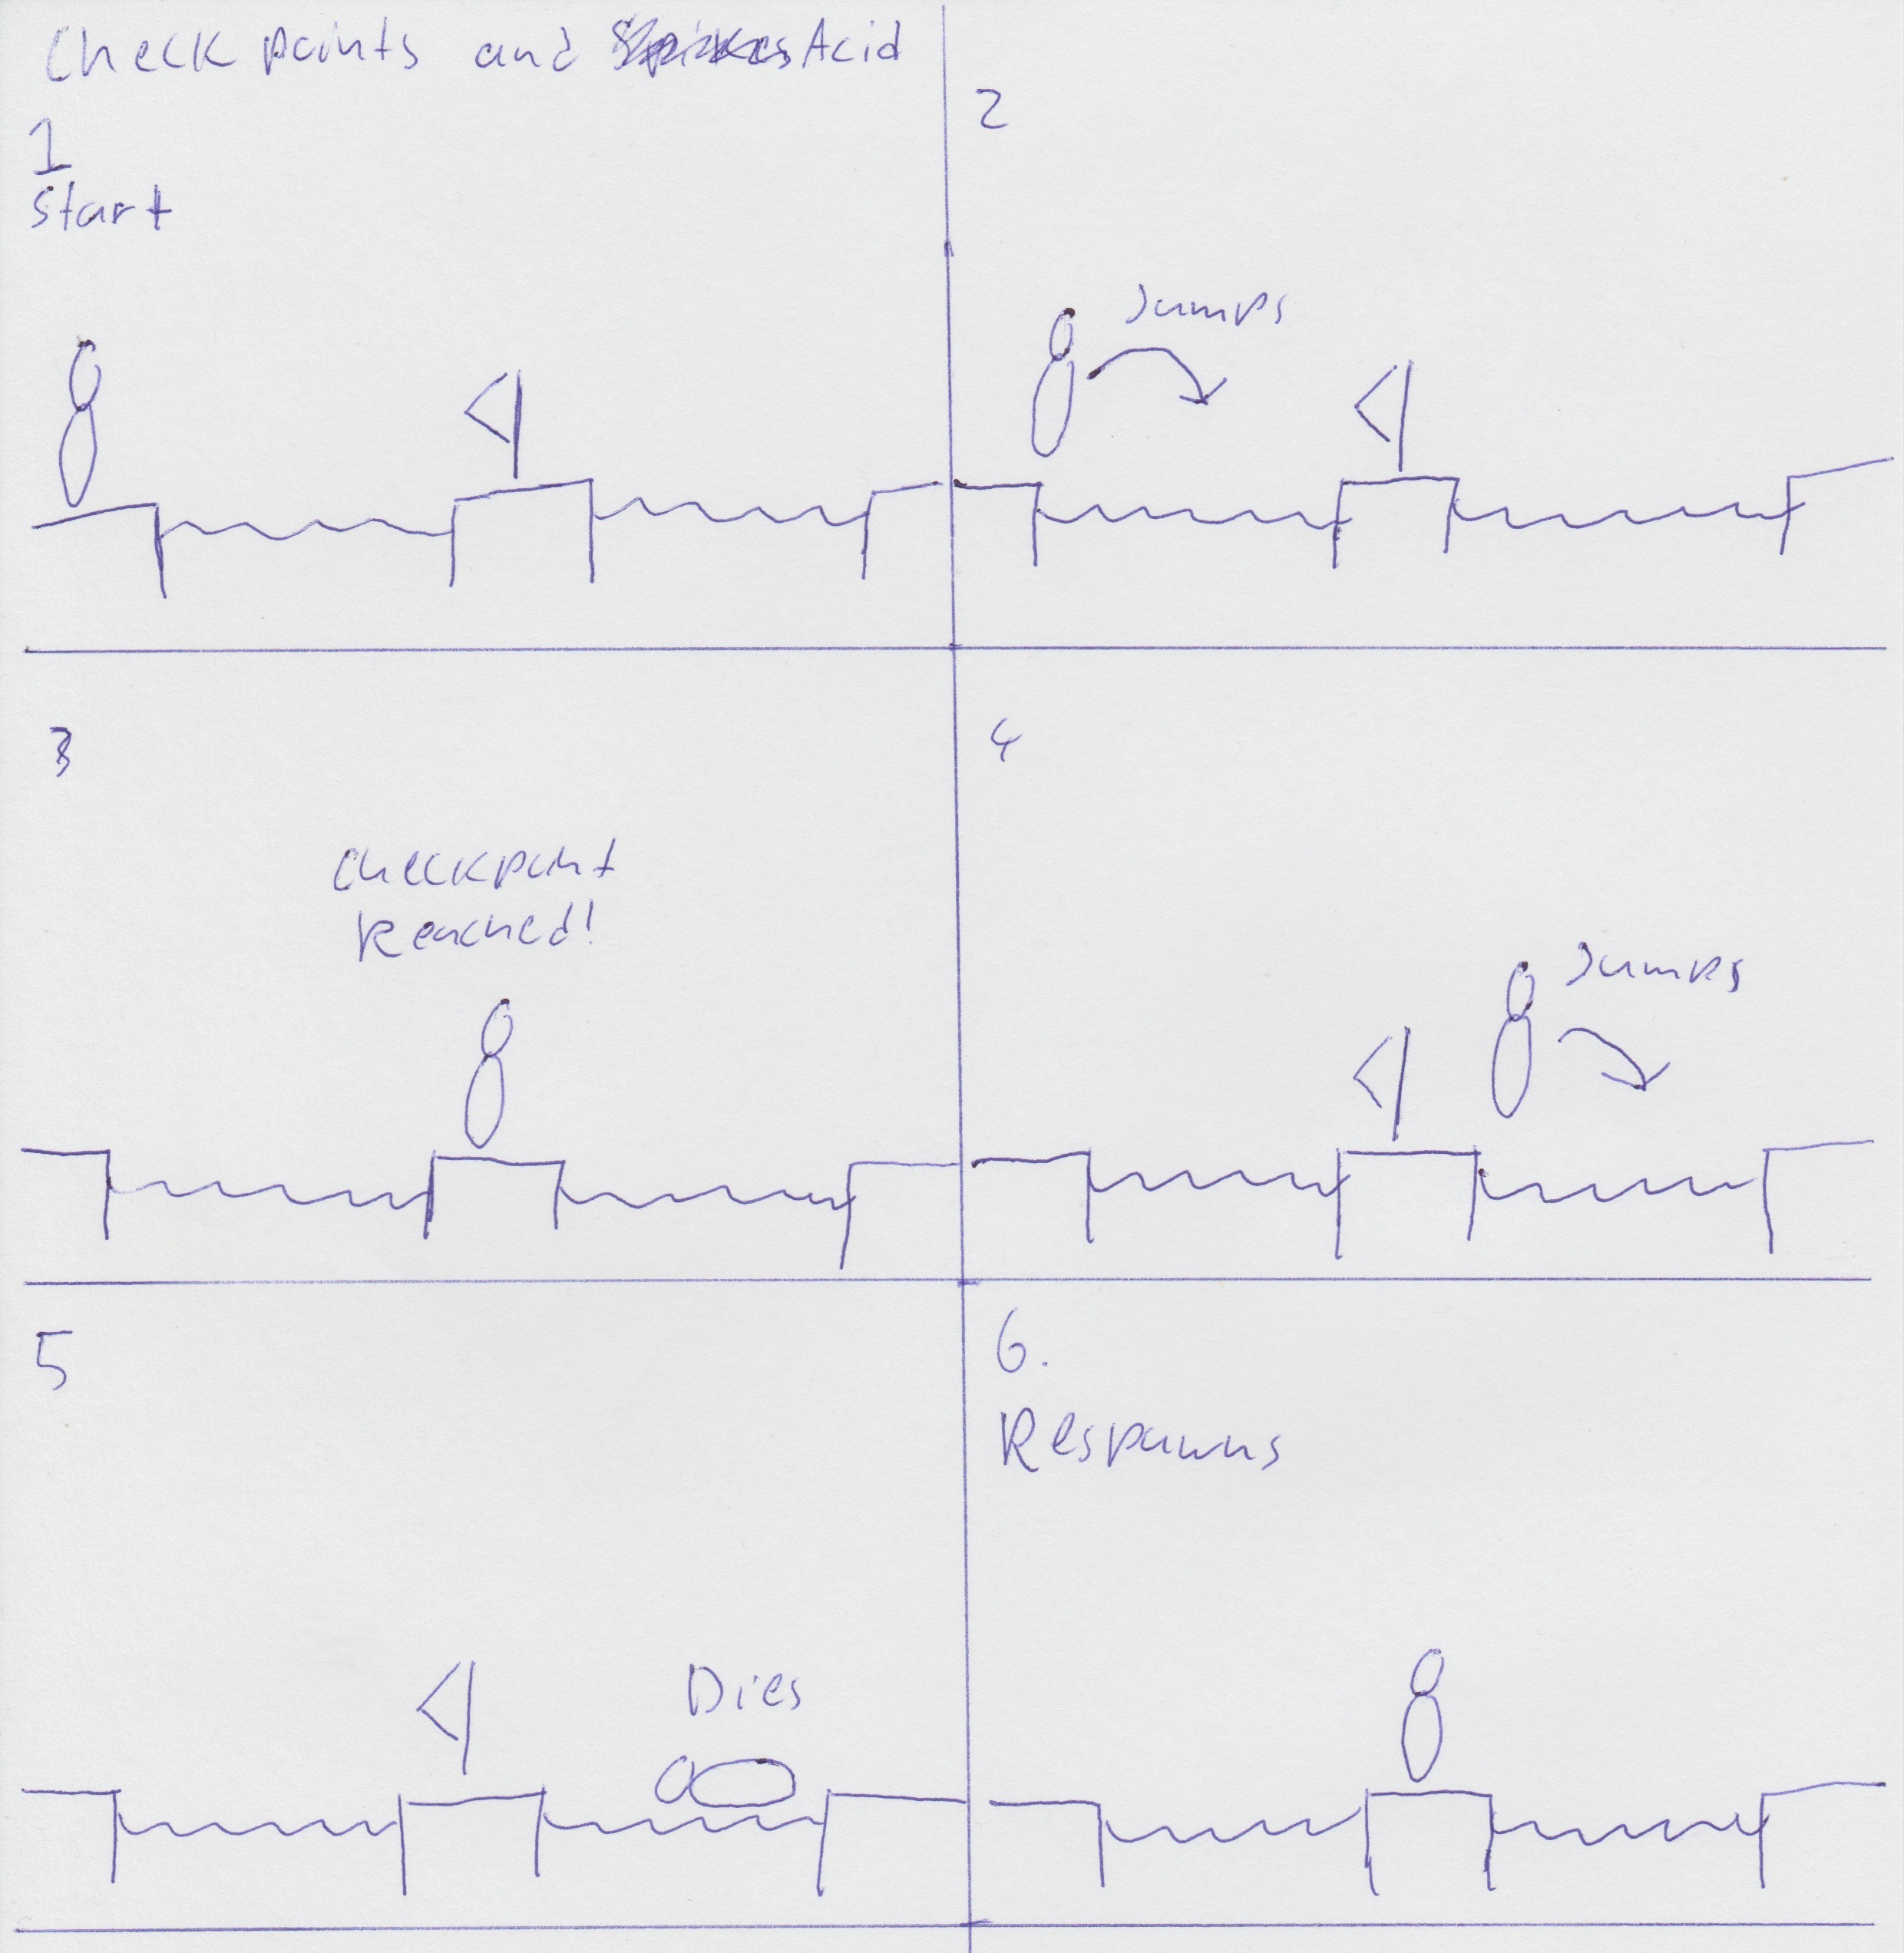 Checkpoints and Spikes Acid
1
Start
2
Jumps
3
Checkpoint
Reached!
4
Jumps
5
Dies
6.
Respawns